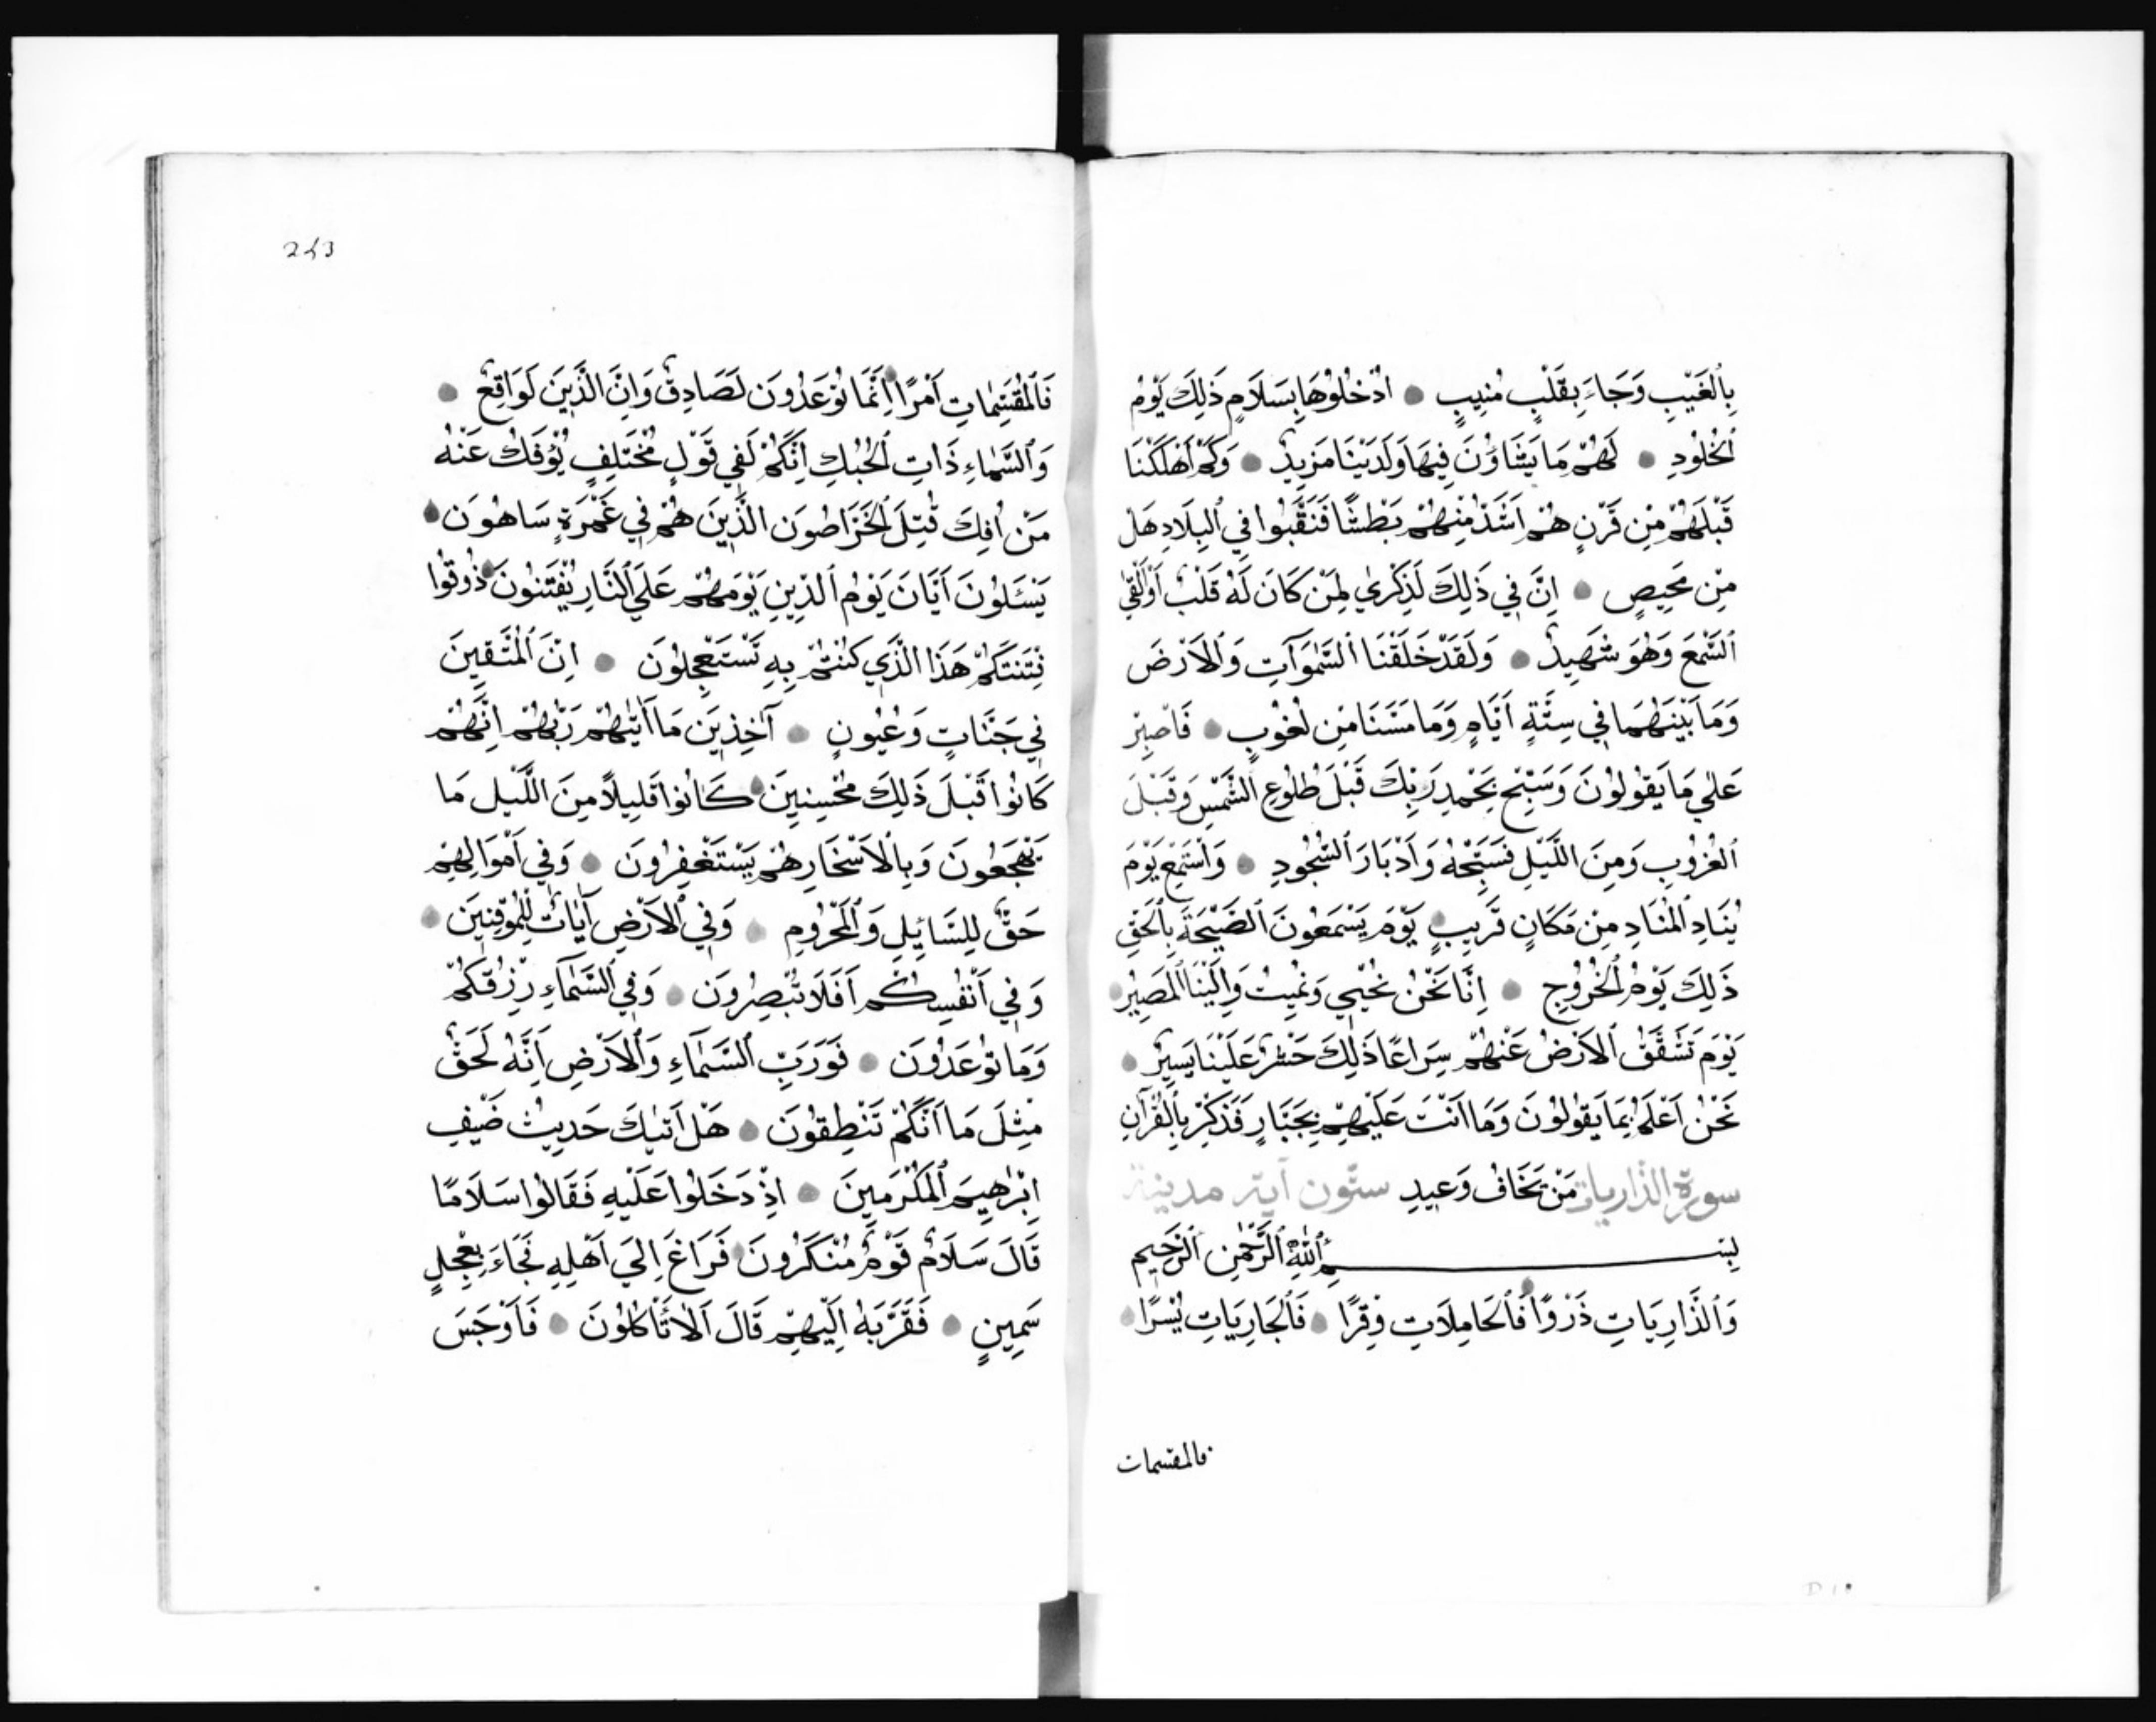 بِالْغَيْبِ وَجَاءَ بِقَلْبٍ مُنِيبٍ ادْخُلُوهَا بِسَلَامٍ ذَلِكَ يَوْمُ
الْخُلُودِ لَهُمْ مَا يَشَاؤُنَ فِيهَا وَلَدَيْنَا مَزِيدٌ وَكَمْ أَهْلَكْنَا
قَبْلَهُمْ مِنْ قَرْنٍ هُمْ اَشَدُّ مِنْهُمْ بَطْشًا فَنَقَّبُوا فِي الْبِلَادِ هَلْ
مِنْ مَحِيصٍ اِنَّ فِي ذَلِكَ لَذِكْرٰي لِمَنْ كَانَ لَهُ قَلْبٌ اَوْ اَلْقَي
السَّمْعَ وَهُوَ شَهِيدٌ وَلَقَدْ خَلَقْنَا السَّمٰوَآتِ وَالْاَرْضَ
وَمَا بَيْنَهُمَا فِي سِتَّةِ اَيَّامٍ وَمَا مَسَّنَا مِنْ لُغُوبٍ فَاصْبِرْ
عَلٰي مَا يَقُولُونَ وَسَبِّحْ بِحَمْدِ رَبِّكَ قَبْلَ طُلُوعِ الشَّمْسِ وَقَبْلَ
الْغُرُوبِ وَمِنَ اللَّيْلِ فَسَبِّحْهُ وَاَدْبَارَ السُّجُودِ وَاسْتَمِعْ يَوْمَ
يُنَادِ الْمُنَادِ مِنْ مَكَانٍ قَرِيبٍ يَوْمَ يَسْمَعُونَ الصَّيْحَةَ بِالْحَقِّ
ذَلِكَ يَوْمُ الْخُرُوجِ اِنَّا نَحْنُ نُحْيِي وَنُمِيتُ وَاِلَيْنَا الْمَصِيرُ
يَوْمَ تَشَقَّقُ الْاَرْضُ عَنْهُمْ سِرَاعًا ذَلِكَ حَشْرٌ عَلَيْنَا يَسِيرٌ
نَحْنُ اَعْلَمُ بِمَا يَقُولُونَ وَمَا اَنْتَ عَلَيْهِمْ بِجَبَّارٍ فَذَكِّرْ بِالْقُرْآنِ
مَنْ يَخَافُ وَعِيدِ سورة الذاريات ستّون آية مدينة
بِسْمِ اللّٰهِ الرَّحْمٰنِ الرَّحِيمِ
وَالذَّارِيَاتِ ذَرْوًا فَالْحَامِلَاتِ وِقْرًا فَالْجَارِيَاتِ يُسْرًا
فالمقسمات
243
فَالْمُقَسِّمَاتِ اَمْرًا اِنَّمَا تُوعَدُونَ لَصَادِقٌ وَاِنَّ الدِّينَ لَوَاقِعٌ
وَالسَّمَاءِ ذَاتِ الْحُبُكِ اِنَّكُمْ لَفِي قَوْلٍ مُخْتَلِفٍ يُؤْفَكُ عَنْهُ
مَنْ اُفِكَ قُتِلَ الْخَرَّاصُونَ الَّذِينَ هُمْ فِي غَمْرَةٍ سَاهُونَ
يَسْئَلُونَ اَيَّانَ يَوْمُ الدِّينِ يَوْمَ هُمْ عَلَي النَّارِ يُفْتَنُونَ ذُوقُوا
فِتْنَتَكُمْ هَذَا الَّذِي كُنْتُمْ بِهِ تَسْتَعْجِلُونَ اِنَّ الْمُتَّقِينَ
فِي جَنَّاتٍ وَعُيُونٍ آخِذِينَ مَا اٰتٰيهُمْ رَبُّهُمْ اِنَّهُمْ
كَانُوا قَبْلَ ذَلِكَ مُحْسِنِينَ كَانُوا قَلِيلًا مِنَ اللَّيْلِ مَا
يَهْجَعُونَ وَبِالْاَسْحَارِ هُمْ يَسْتَغْفِرُونَ وَفِي اَمْوَالِهِمْ
حَقٌّ لِلسَّائِلِ وَالْمَحْرُومِ وَفِي الْاَرْضِ اٰيَاتٌ لِلْمُوقِنِينَ
وَفِي اَنْفُسِكُمْ اَفَلَا تُبْصِرُونَ وَفِي السَّمَآءِ رِزْقُكُمْ
وَمَا تُوعَدُونَ فَوَرَبِّ السَّمَآءِ وَالْاَرْضِ اِنَّهُ لَحَقٌّ
مِثْلَ مَا اَنَّكُمْ تَنْطِقُونَ هَلْ اَتٰيكَ حَدِيثُ ضَيْفِ
اِبْرٰهِيمَ الْمُكْرَمِينَ اِذْ دَخَلُوا عَلَيْهِ فَقَالُوا سَلَامًا
قَالَ سَلَامٌ قَوْمٌ مُنْكَرُونَ فَرَاغَ اِلَي اَهْلِهِ فَجَاءَ بِعِجْلٍ
سَمِينٍ فَقَرَّبَهُ اِلَيْهِمْ قَالَ اَلَا تَأْكُلُونَ فَاَوْجَسَ